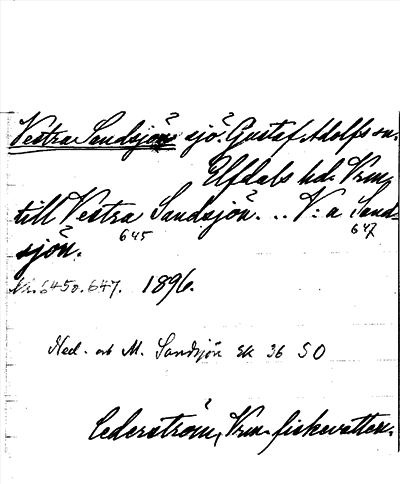 Vestra Sandsjön sjö. Gustaf Adolfs sn.
Elfdals hd. Vrm.
till Vestra Sandsjön. .. V:a Sand-
645 647
sjön.
Nr. 645 o. 647. 1896.
Ned. och M. Sandsjön EK 36 SO
Cederström, Vrm. fiskevatten.